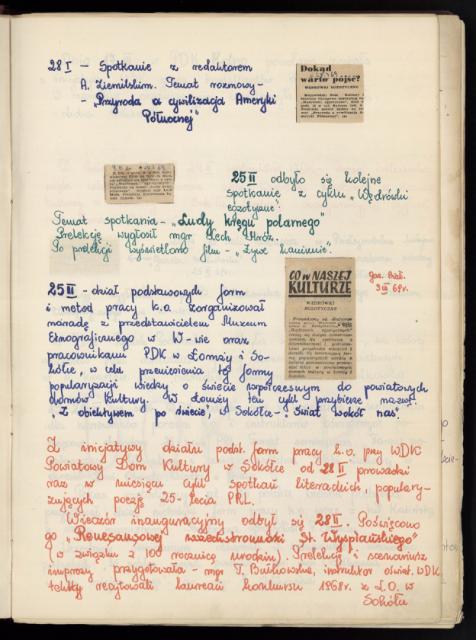 28 I – Spotkanie z redaktorem
A. Ziemilskim. Temat rozmowy -
- „Przyroda a cywilizacja Ameryki
Północnej"
Dokąd
warto pójść?
WĘDRÓWKI EGZOTYCZNE
25 II odbyło się kolejne
spotkanie z cyklu „Wędrówki
egzotyczne".
Temat spotkania - „Ludy kręgu polarnego"
Prelekcję wygłosił mgr Lech Mróz.
Po prelekcji wyświetlono film - „Żywe kamienie".
CO w NASZEJ
KULTURZE
WĘDRÓWKI
EGZOTYCZNE
Gaz. Biał.
3 III 69 r.
25 II - dział podstawowych form
i metod pracy k.o. zorganizował
naradę z przedstawicielem Muzeum
Etnograficznego w W-wie oraz
pracownikami PDK w Łomży i So-
kółce, w celu przeniesienia tej formy
popularyzacji wiedzy o świecie współczesnym do powiatowych
domów kultury. W Łomży ten cykl przybierze nazwę -
„Z obiektywem po świecie", w Sokółce - „Świat wokół nas".
Z inicjatywy działu podst. form pracy k.o. przy WDK
Powiatowy Dom Kultury w Sokółce od 28 II prowadzi
raz w miesiącu cykl spotkań literackich, populary-
zujących poezję 25-lecia PRL.
Wieczór inauguracyjny odbył się 28 II. Poświęcono
go „Renesansowej wszechstronności St. Wyspiańskiego"
(w związku z 100 rocznicą urodzin). Prelekcję i scenariusz
imprezy przygotowała - mgr T. , instruktor oświat. WDK
teksty recytowali laureaci konkursu 1968 r. z L.O. w
Sokółce